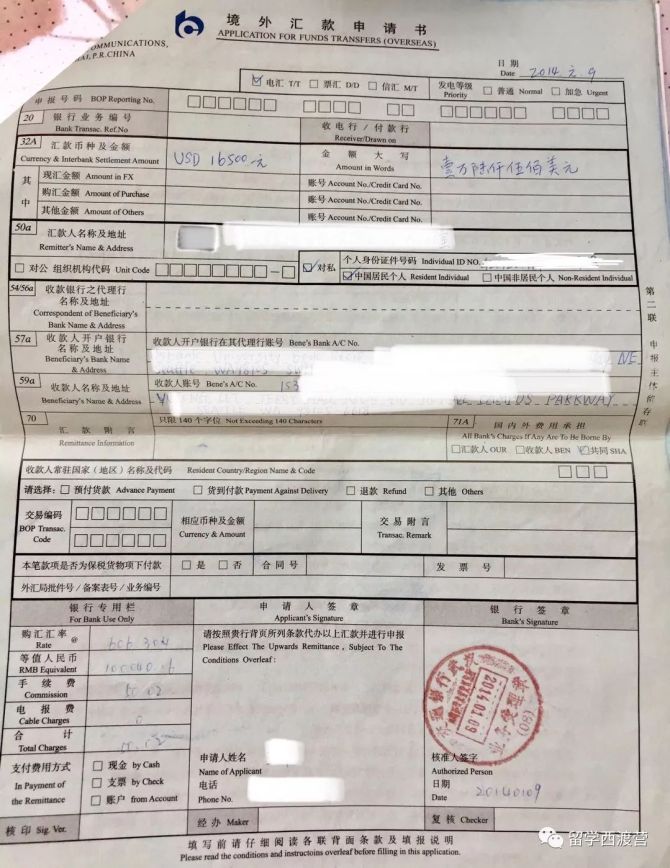 境外汇款申请书
COMMUNICATIONS,
APPLICATION FOR FUNDS TRANSFERS (OVERSEAS)
P.R.CHINA
日期
Date 2014.元.9
电汇 T/T 票汇 D/D 信汇 M/T 发电等级 Priority 普通 Normal 加急 Urgent
申报号码 BOP Reporting No.
20 银行业务编号 收电行/付款行
Bank Transac. Ref.No Receiver/Drawn on
32A 汇款币种及金额 USD 16500元 金额大写 壹万陆仟伍佰美元
Currency & Interbank Settlement Amount Amount in Words
其中
现汇金额 Amount in FX 账号 Account No./Credit Card No.
购汇金额 Amount of Purchase 账号 Account No./Credit Card No.
其他金额 Amount of Others 账号 Account No./Credit Card No.
50a 汇款人名称及地址
Remitter's Name & Address
对公 组织机构代码 Unit Code 对私 个人身份证件号码 Individual ID NO.
中国居民个人 Resident Individual 中国非居民个人 Non-Resident Individual
54/56a 收款银行之代理行
名称及地址
Correspondent of Beneficiary's
Bank Name & Address
57a 收款人开户银行 收款人开户银行在其代理行账号 Bene's Bank A/C No.
名称及地址
Beneficiary's Bank Name
& Address NE
59a 收款人名称及地址 收款人账号 Bene's A/C No. 153
Beneficiary's Name & Address PARKWAY
70 汇款附言 只限140个字位 Not Exceeding 140 Characters 71A 国内外费用承担
Remittance Information All Bank's Charges If Any Are To Be Borne By
汇款人 OUR 收款人 BEN 共同 SHA
第二联 申报主体留存联
收款人常驻国家(地区)名称及代码 Resident Country/Region Name & Code
请选择: 预付货款 Advance Payment 货到付款 Payment Against Delivery 退款 Refund 其他 Others
交易编码 相应币种及金额 交易附言
BOP Transac. Currency & Amount Transac. Remark
Code
本笔款项是否为保税货物项下付款 是 否 合同号 发票号
外汇局批件号/备案表号/业务编号
银行专用栏 申请人签章 银行签章
For Bank Use Only Applicant's Signature Bank's Signature
购汇汇率 @
Rate
请按照贵行背页所列条款代办以上汇款并进行申报
Please Effect The Upwards Remittance, Subject To The
Conditions Overleaf:
等值人民币
RMB Equivalent
手续费
Commission
电报费
Cable Charges
合计
Total Charges
2014.01.09
(08)
支付费用方式
In Payment of
the Remittance
现金 by Cash
支票 by Check
账户 from Account
申请人姓名
Name of Applicant
电话
Phone No.
核准人签字
Authorized Person
日期
Date 20140109
核印 Sig. Ver. 经办 Maker 复核 Checker
填写前请仔细阅读各联背面条款及填报说明
Please read the conditions and instructoins overleaf before filling in this application.
留学西渡营